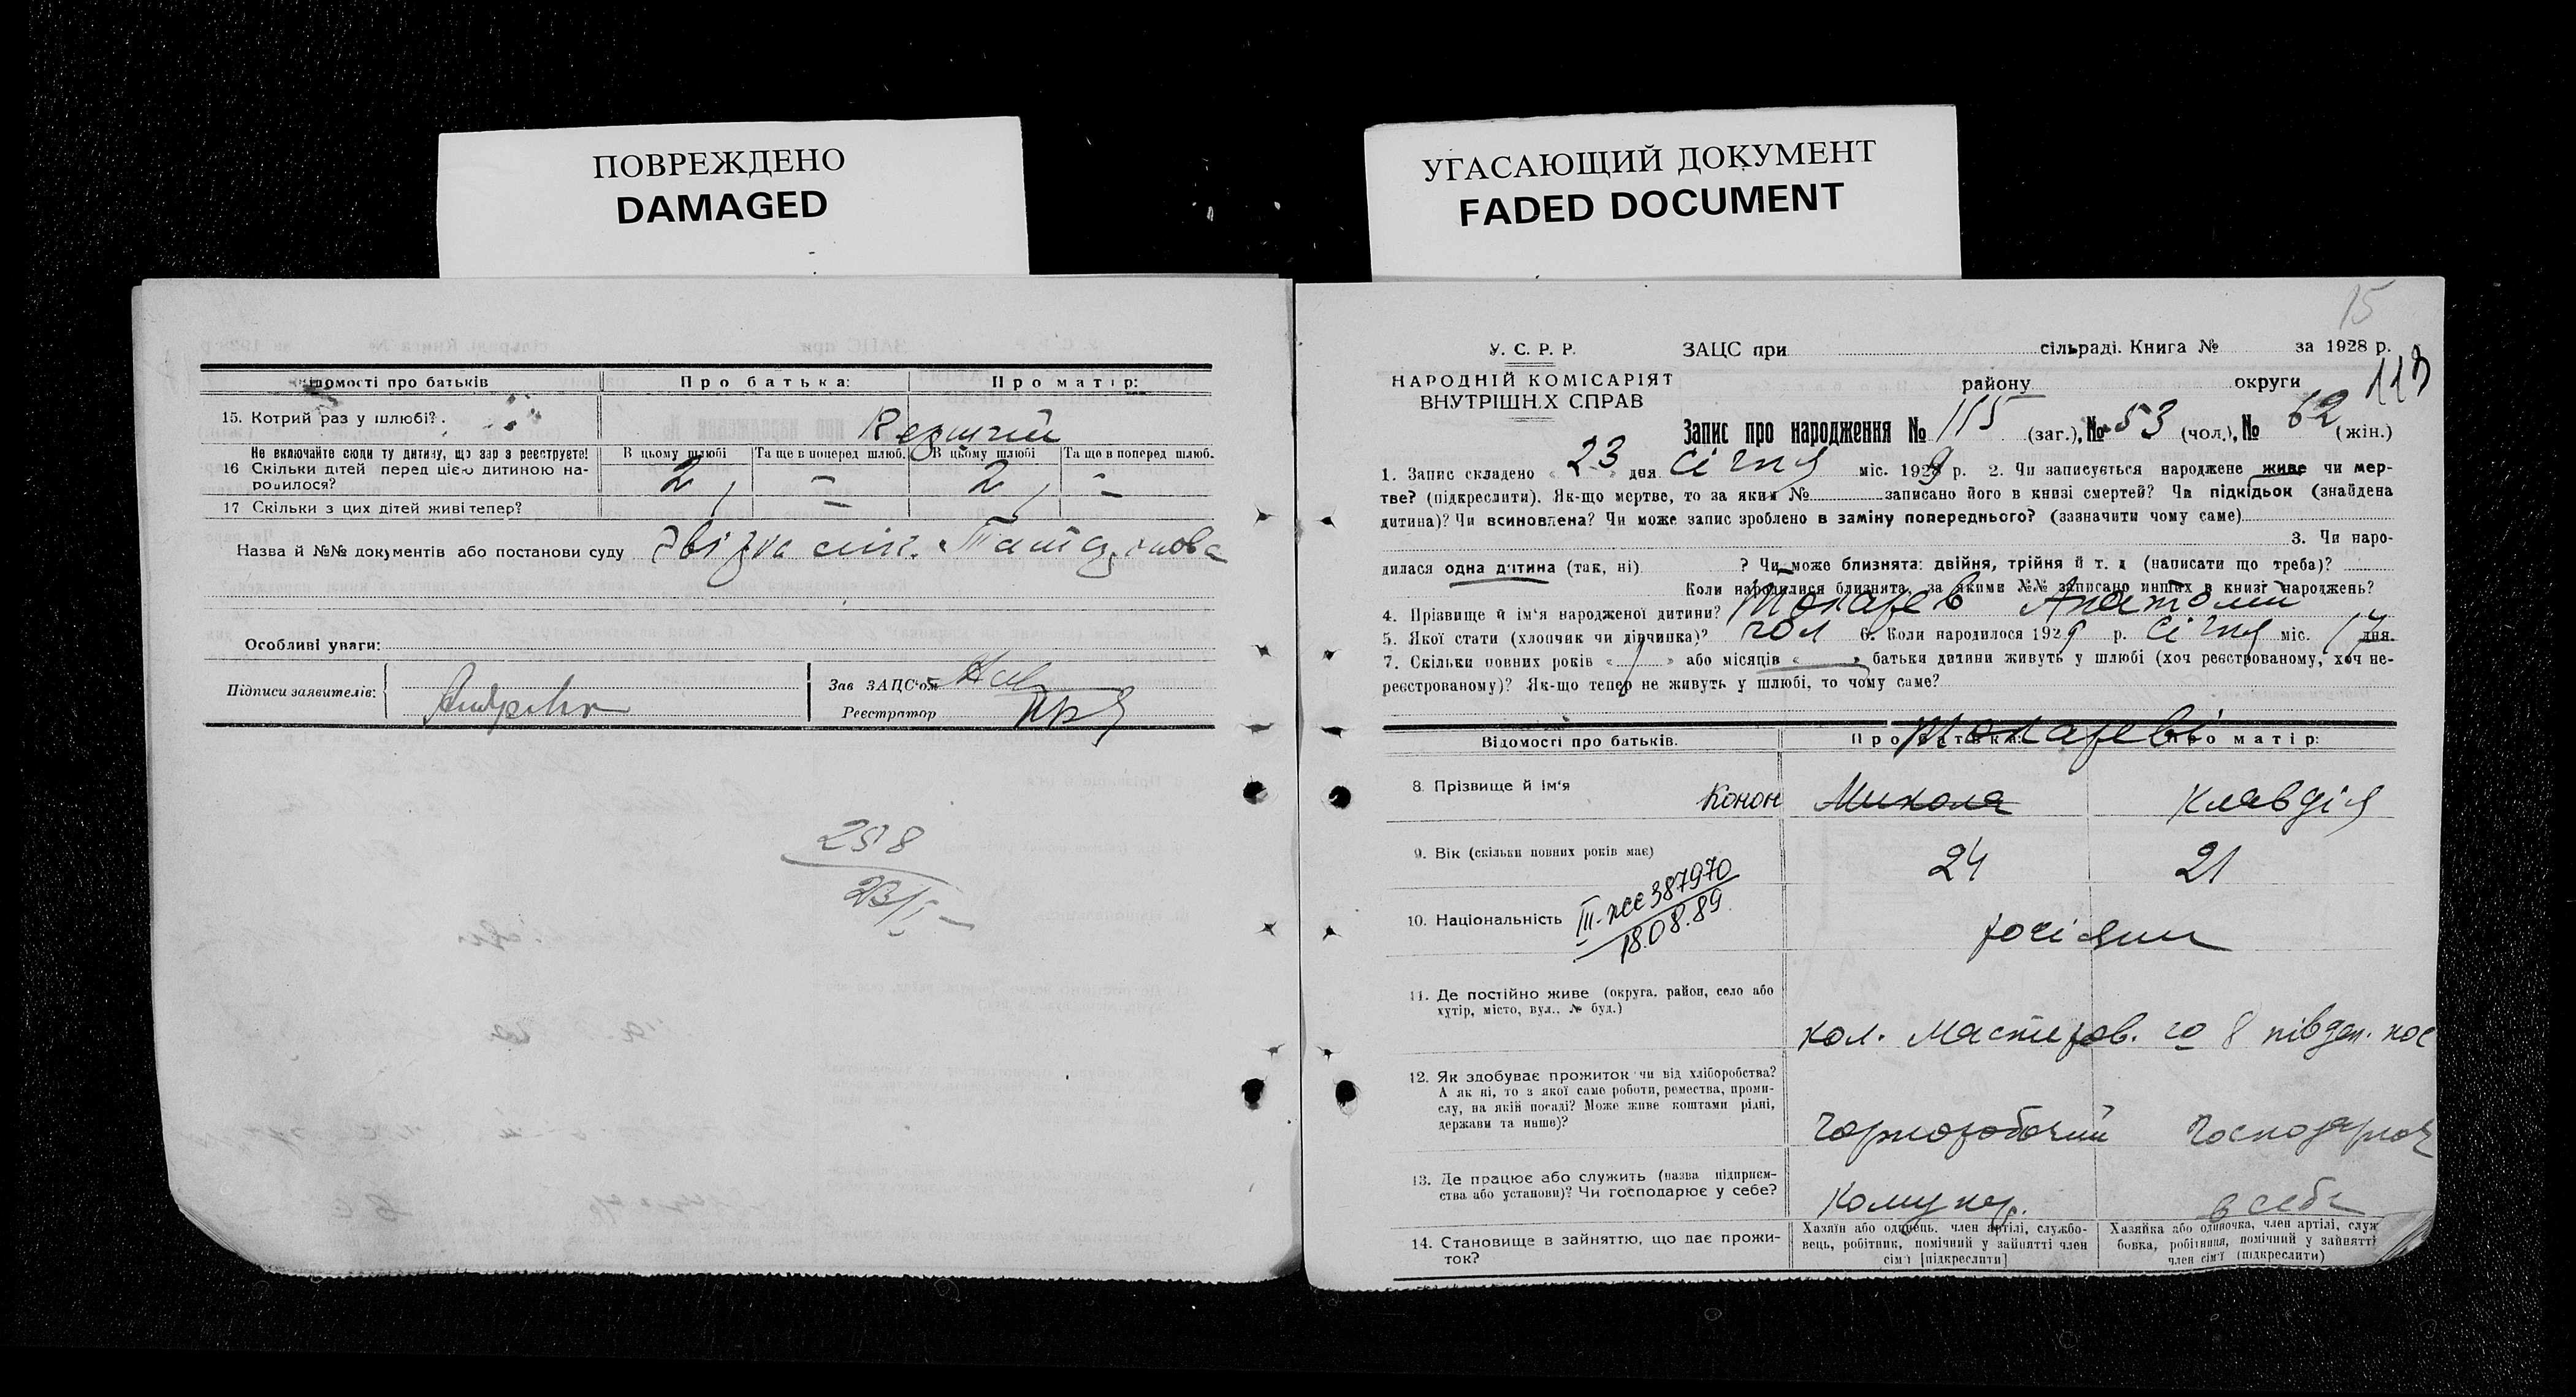 ПОВРЕЖДЕНО
DAMAGED
УГАСАЮЩИЙ ДОКУМЕНТ
FADED DOCUMENT
Відомості про батьків
Про батька:
Про матір:
15. Котрий раз у шлюбі?
Не включайте сюди ту дитину, що зараз реєструєте!
В цьому шлюбі
Та ще в поперед шлюб.
В цьому шлюбі
Та ще в поперед шлюб.
16 Скільки дітей перед цією дитиною народилося?
2
—
2
—
17 Скільки з цих дітей живі тепер?
Назва й №№ документів або постанови суду
Особливі уваги:
Підписи заявителів:
Зав ЗАЦС'ом
Реєстратор
298
23/I
15
У. С. Р. Р.
НАРОДНІЙ КОМІСАРІЯТ
ВНУТРІШНІХ СПРАВ
ЗАЦС при сільраді. Книга № за 1928 р.
району округи
113
Запис про народження № 115 (заг.), № 53 (чол.), № 62 (жін.)
1. Запис складено « 23 » дня січня міс. 1929 р. 2. Чи записується народжене живе чи мер-
тве? (підкреслити). Як-що мертве, то за яким № записано його в книзі смертей? Чи підкідьок (знайдена
дитина)? Чи всиновлена? Чи може запис зроблено в заміну попереднього? (зазначити чому саме)
3. Чи наро-
дилася одна дитина (так, ні) ? Чи може близнята: двійня, трійня й т. д (написати що треба)?
Коли народилися близнята, за якими №№ записано инших в книзі народжень?
4. Прізвище й ім'я народженої дитини? Токарев Анатолий
5. Якої стати (хлопчик чи дівчинка)? чол 6. Коли народилося 1929 р. січня міс. 17 дня.
7. Скільки повних років « » або місяців « » батьки дитини живуть у шлюбі (хоч реєстрованому, хоч не-
реєстрованому)? Як-що тепер не живуть у шлюбі, то чому саме?
Відомості про батьків.
Про батька:
Про матір:
Токареві
8. Прізвище й ім'я
Конон
Микола
Клавдія
9. Вік (скільки повних років має)
24
21
10. Національність
387970
18.08.89
росіяни
11. Де постійно живе (округа, район, село або
хутір, місто, вул., № буд.)
кол. Мастеров. 8 півден. пос
12. Як здобуває прожиток чи від хліборобства?
А як ні, то з якої саме роботи, ремества, проми-
слу, на якій посаді? Може живе коштами рідні,
держави та инше)?
Чорноробочий
Господарює
13. Де працює або служить (назва підприєм-
ства або установи)? Чи господарює у себе?
Комунгр.
в себе
14. Становище в зайняттю, що дає прожи-
ток?
Хазяїн або одинець, член артілі, службо-
вець, робітник, помічний у зайнятті член
сім'ї [підкреслити]
Хазяйка або одиночка, член артілі, служ
бовка, робітниця, помічний у зайнятті
член сім'ї (підкреслити)